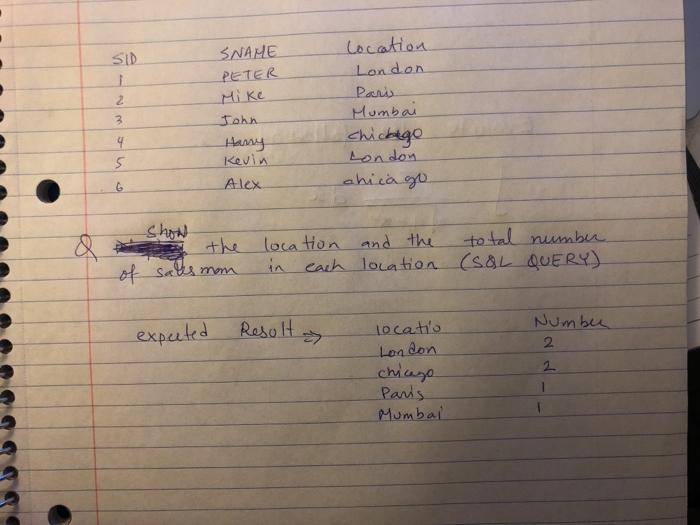 SID SNAME Location
1 PETER London
2 Mike Paris
3 John Mumbai
4 Harry chicago
5 Kevin London
6 Alex chicago
Q show the location and the total number
of salesman in each location (SQL QUERY)
expected Result ⇒ locatio Number
London 2
chicago 2
Paris 1
Mumbai 1